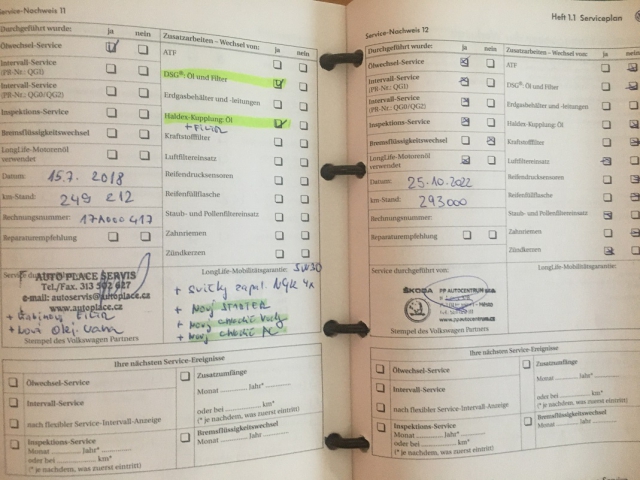 Service-Nachweis 11
Durchgeführt wurde: ja nein
Ölwechsel-Service
Intervall-Service
(PR-Nr.: QG1)
Intervall-Service
(PR-Nr.: QG0/QG2)
Inspektions-Service
Bremsflüssigkeitswechsel
LongLife-Motorenöl
verwendet
Datum: 15.7. 2018
km-Stand: 249 212
Rechnungsnummer: 17A000417
Reparaturempfehlung
Zusatzarbeiten – Wechsel von: ja nein
ATF
DSG®: Öl und Filter
Erdgasbehälter und -leitungen
Haldex-Kupplung: Öl
+ FILTR
Kraftstofffilter
Luftfiltereinsatz
Reifendrucksensoren
Reifenfüllflasche
Staub- und Pollenfiltereinsatz
Zahnriemen
Zündkerzen
Service durchgeführt von:
AUTO PLACE SERVIS
Tel./Fax. 313 502 627
e-mail: autoservis@autoplace.cz
www.autoplace.cz
Stempel des Volkswagen Partners
LongLife-Mobilitätsgarantie: 5W30
+ svíčky zapal. NGK 4x
+ Nový STARTER
+ Nový chladič
+ Nový chladič
Ihre nächsten Service-Ereignisse
Ölwechsel-Service
Intervall-Service
nach flexibler Service-Intervall-Anzeige
Inspektions-Service
Monat Jahr*
oder bei km*
(* je nachdem, was zuerst eintritt)
Zusatzumfänge
Monat Jahr*
oder bei km*
(* je nachdem, was zuerst eintritt)
Bremsflüssigkeitswechsel
Monat Jahr
Heft 1.1 Serviceplan
Service-Nachweis 12
Durchgeführt wurde: ja nein
Ölwechsel-Service
Intervall-Service
(PR-Nr.: QG1)
Intervall-Service
(PR-Nr.: QG0/QG2)
Inspektions-Service
Bremsflüssigkeitswechsel
LongLife-Motorenöl
verwendet
Datum: 25.10.2022
km-Stand: 293000
Rechnungsnummer:
Reparaturempfehlung
Zusatzarbeiten – Wechsel von: ja nein
ATF
DSG®: Öl und Filter
Erdgasbehälter und -leitungen
Haldex-Kupplung: Öl
Kraftstofffilter
Luftfiltereinsatz
Reifendrucksensoren
Reifenfüllflasche
Staub- und Pollenfiltereinsatz
Zahnriemen
Zündkerzen
Service durchgeführt von:
ŠKODA PP AUTOCENTRUM
Stempel des Volkswagen Partners
LongLife-Mobilitätsgarantie:
Ihre nächsten Service-Ereignisse
Ölwechsel-Service
Intervall-Service
nach flexibler Service-Intervall-Anzeige
Inspektions-Service
Monat Jahr*
oder bei km*
(* je nachdem, was zuerst eintritt)
Zusatzumfänge
Monat Jahr*
oder bei km*
(* je nachdem, was zuerst eintritt)
Bremsflüssigkeitswechsel
Monat Jahr